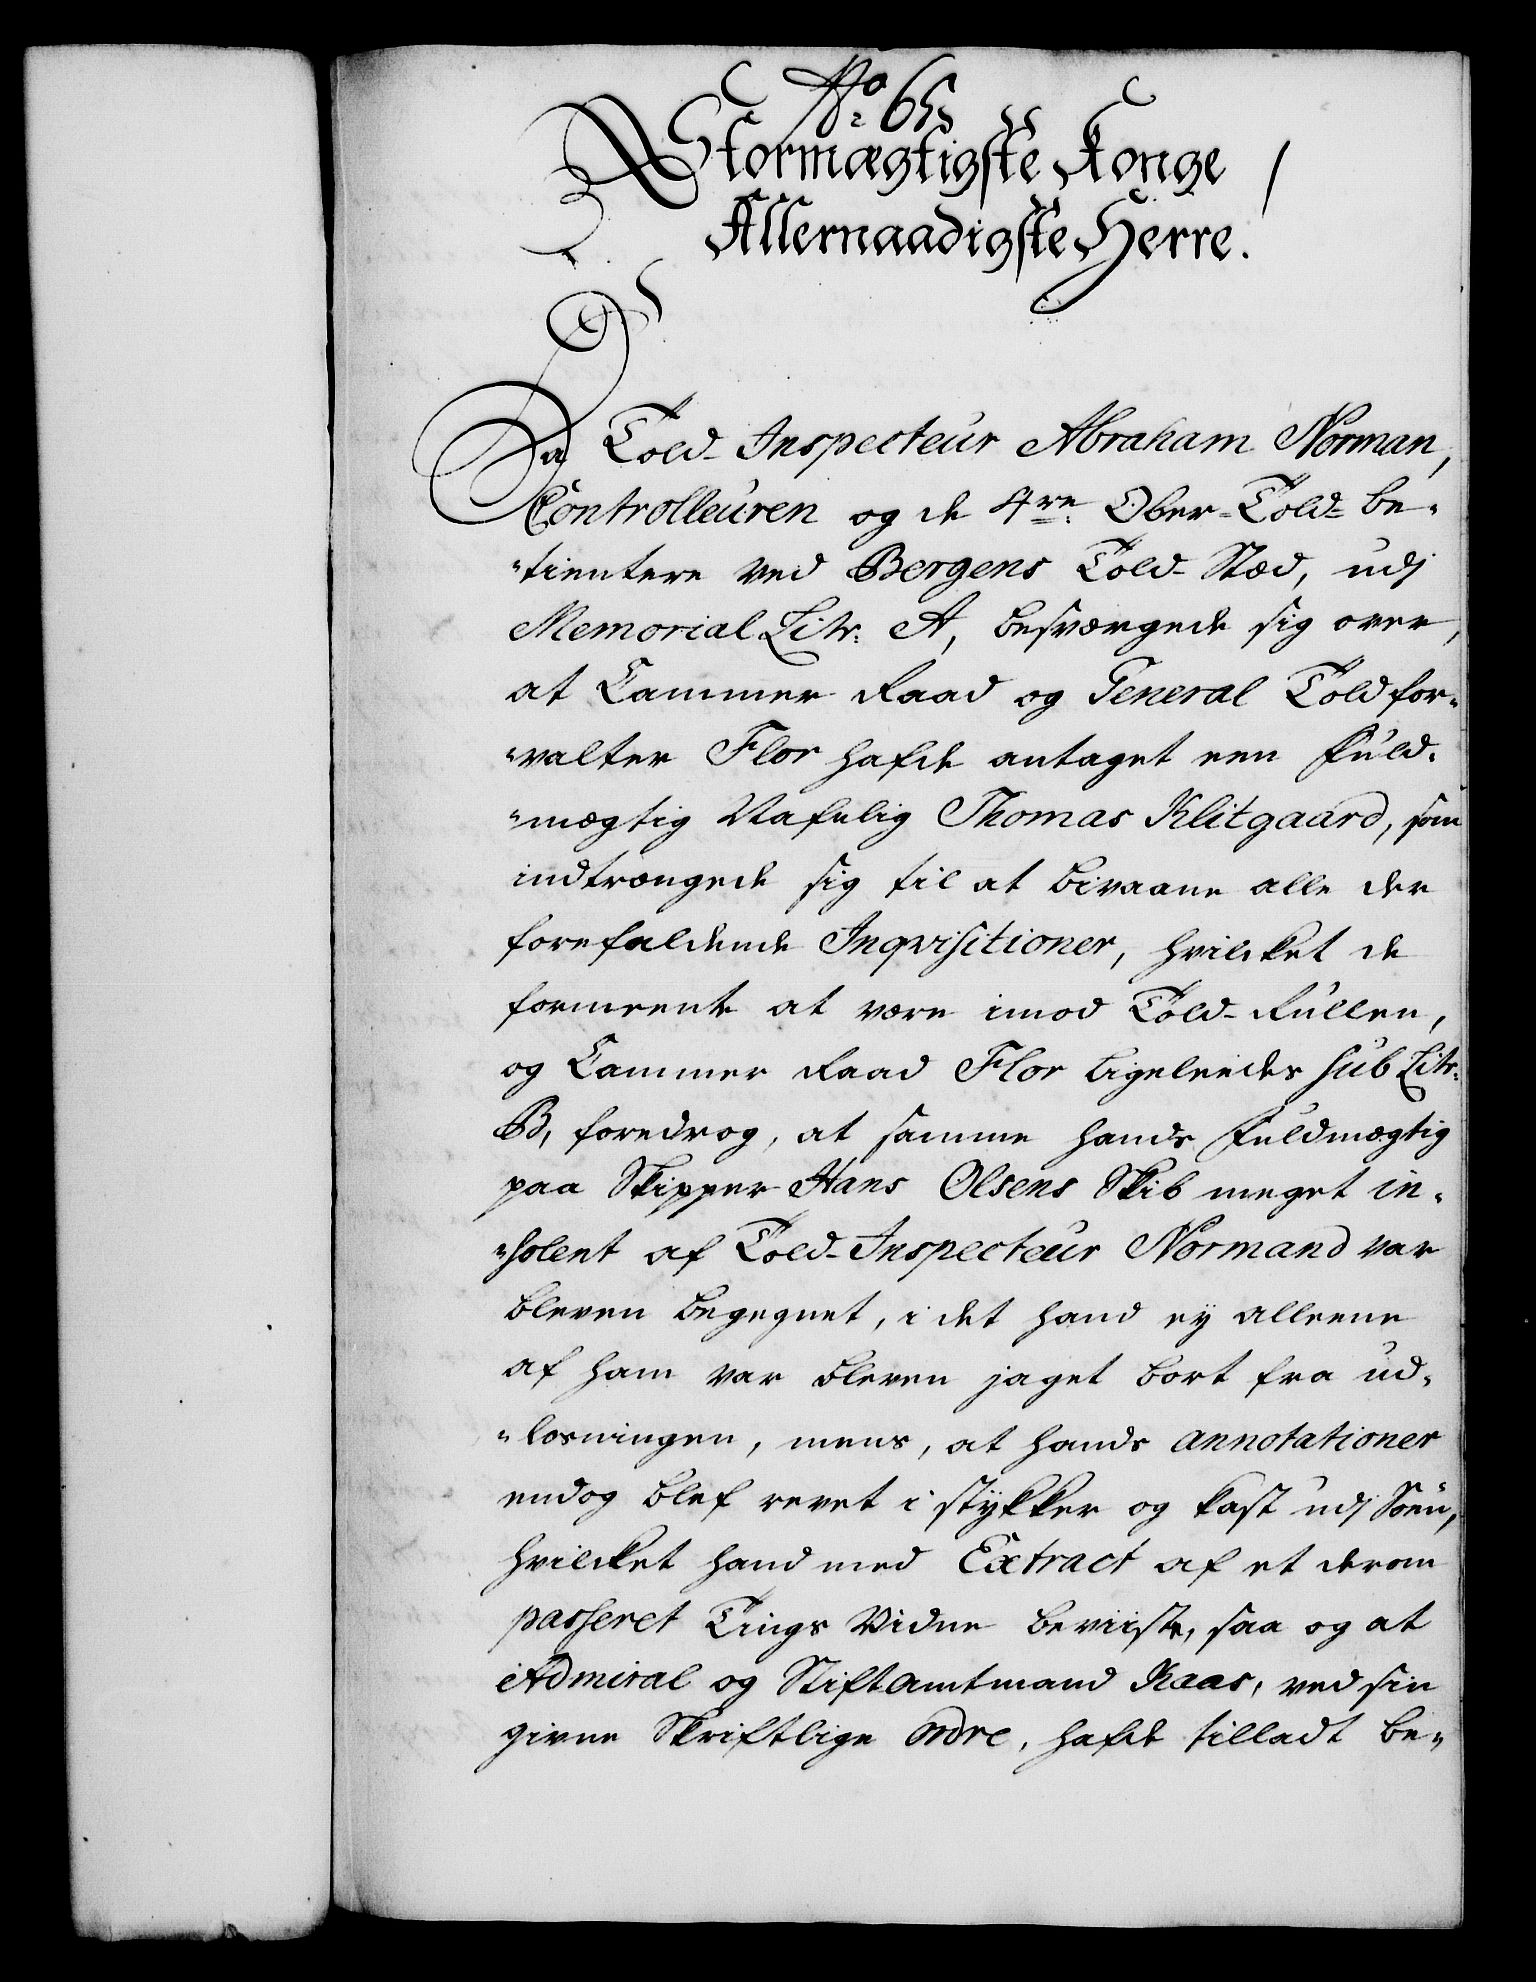 No. 65
Stormægtigste Konge /
Allernaadigste Herre.
Da Told-Inspecteur Abraham Norman,
Controlleuren og de 4re Ober-Told-be-
-tientere ved Bergens Told-Stæd, udj
Memorial Litr: A, besværgede sig over,
at Cammer Raad og General Toldfor-
-valter Flor hafde antaget een Fuld-
-mægtig Nafnlig Thomas Klitgaard, som
indtrængede sig til at bivaane alle der
forefaldende Inqvisitioner, hvilcket de
formeente at være imod Told-Rullen,
og Cammer Raad Flor ligeleedes sub Litr:
B, foredrog, at samme hands Fuldmægtig
paa Skipper Hans Olsens Skib meget in-
-solent af Told-Inspecteur Normand var
bleven begegnet, i det hand ey alleene
af ham var bleven jaget bort fra ud-
-losningen, mens, at hands annotationer
endog blef revet i stykker og kast udj Söen,
hvilcket hand med Extract af et derom
passeret Tings Vidne beviiste, saa og at
Admiral og Stiftamtmand Kaas, ved sin
givne Skriftlige Ordre, hafde tilladt be-